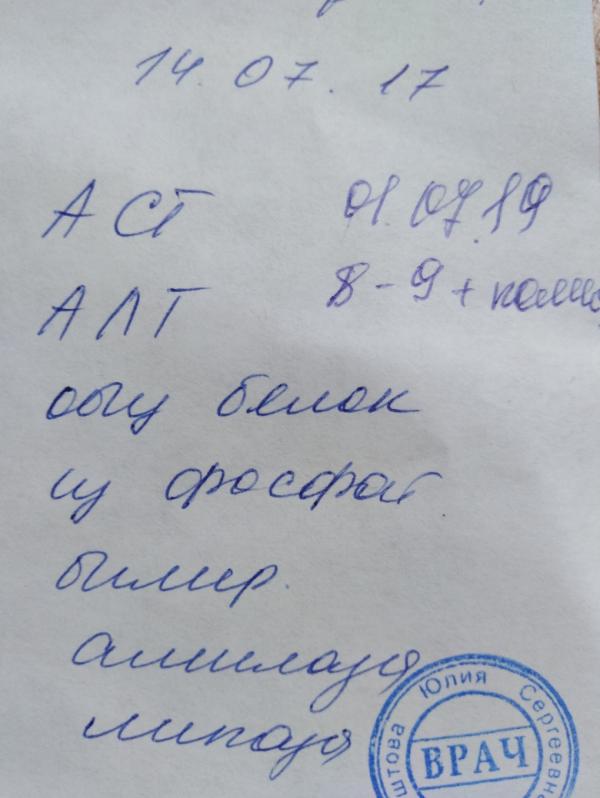 14.07.17
АСТ
01.07.19
АЛТ
8-9 +
общ белок
щ фосфат
билир.
амилаза
липаза
Юлия Сергеевна
ВРАЧ